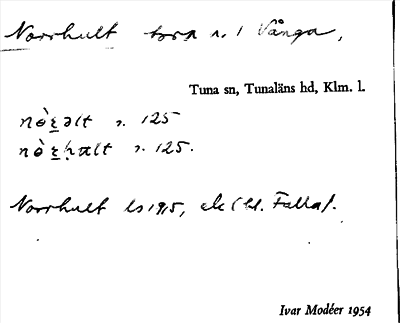 Norrhult torp n. 1 Vånga,
Tuna sn, Tunaläns hd, Klm. l.
s. 125
s. 125.
Norrhult ls 1915, ek (bl. Falla).
Ivar Modéer 1954